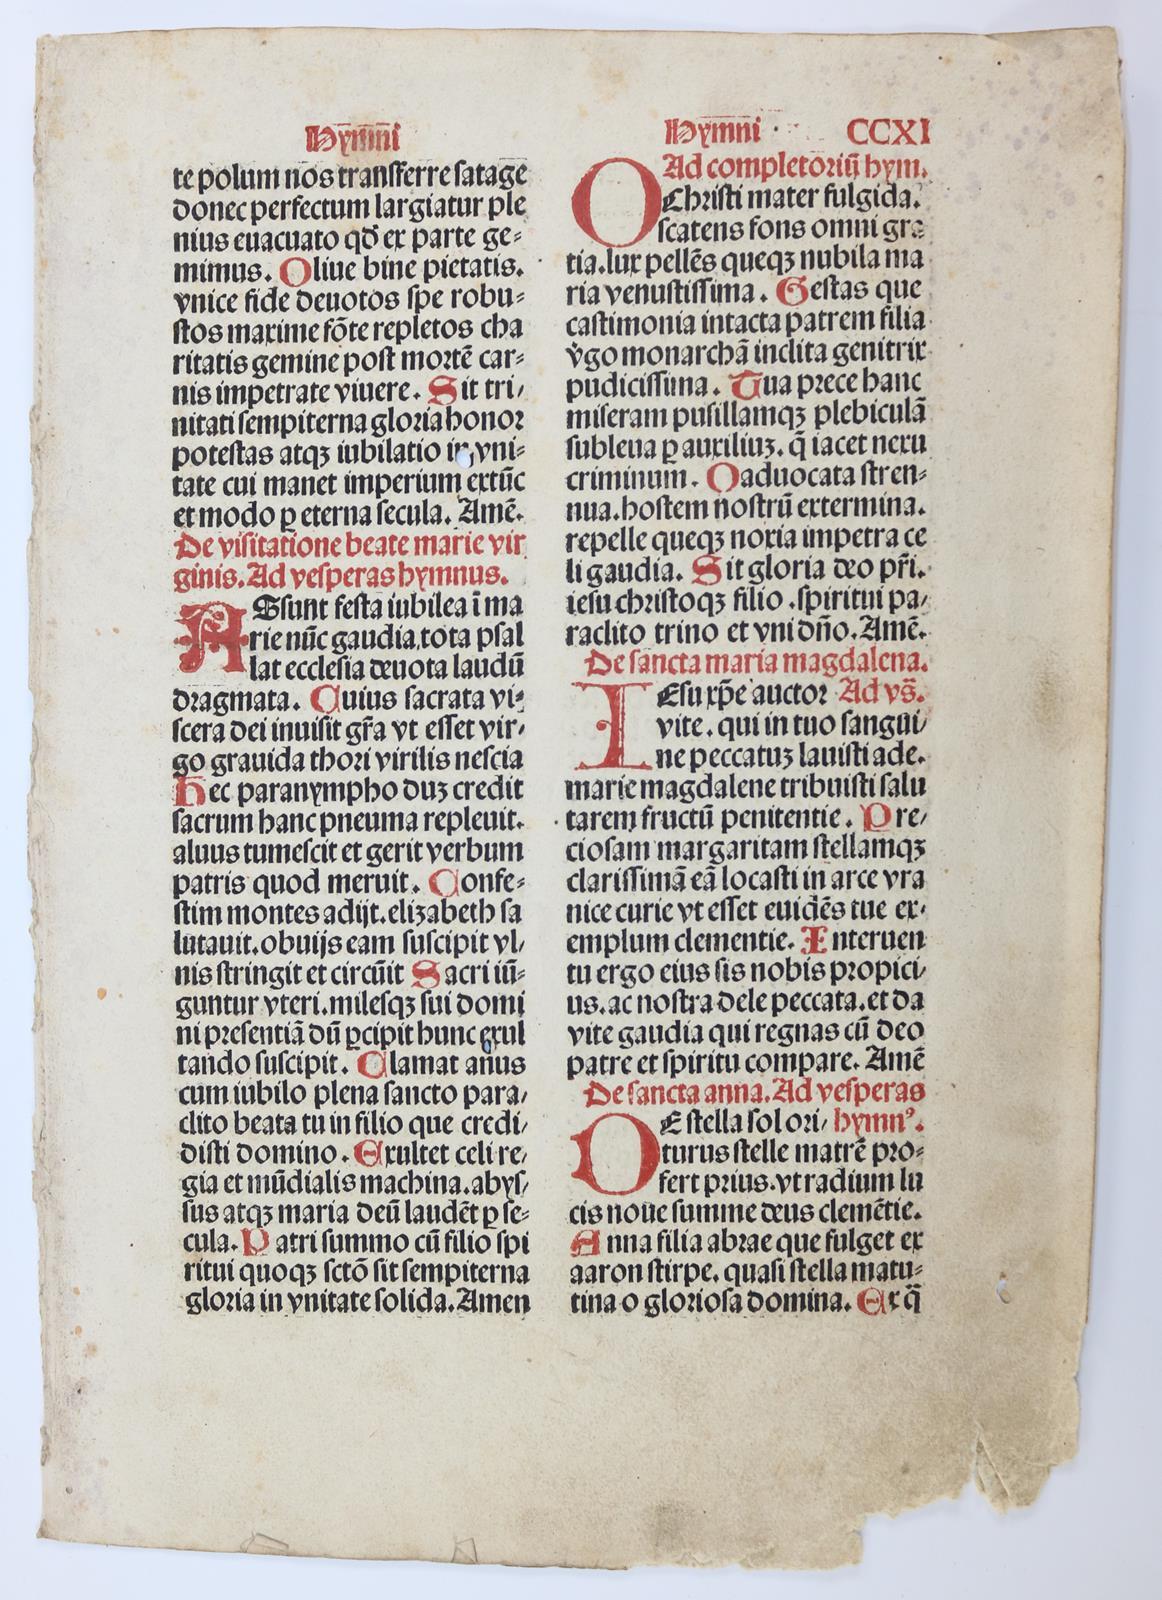 Hymni
te polum nos transferre satage
donec perfectum largiatur ple
nius euacuato qd̕ ex parte ge⸗
mimus. Oliue bine pietatis.
vnice fide deuotos spe robu⸗
stos maxime fōte repletos cha
ritatis gemine post mortē car⸗
nis impetrate viuere. Sit tri/
nitati sempiterna gloria honor
potestas atqꝫ iubilatio in vni⸗
tate cui manet imperium extūc
et modo ꝑ eterna secula. Amē.
De visitatione beate marie vir
ginis. Ad vesperas hymnus.
ASsunt festa iubilea ī ma
rie nūc gaudia, tota psal
lat ecclesia deuota laudū
dragmata. Cuius sacrata vi⸗
scera dei inuisit gr̄a vt esset vir⸗
go grauida thori virilis nescia
Hec paranympho duꝫ credit
sacrum hanc pneuma repleuit.
aluus tumescit et gerit verbum
patris quod meruit. Confe⸗
stim montes adijt. elizabeth sa
lutauit. obuijs eam suscipit vl⸗
nis stringit et circūit Sacri iū⸗
guntur vteri. milesqꝫ sui domi
ni presentiā dū ꝑcipit hunc exul
tando suscipit. Clamat anus
cum iubilo plena sancto para/
clito beata tu in filio que credi/
disti domino. Exultet celi re/
gia et mūdialis machina. abys/
sus atqꝫ maria deū laudēt ꝑ se⸗
cula. Patri summo cū filio spi
ritui quoqꝫ sctō sit sempiterna
gloria in vnitate solida. Amen
Hymni CCXI
Ad completoriū hym.
O Christi mater fulgida.
scatens fons omni gra
tia. lux pellēs queqꝫ nubila ma
ria venustissima. Gestas que
castimonia intacta patrem filia
v̕go monarchā inclita genitrix
pudicissima. Tua prece hanc
miseram pusillamqꝫ plebiculā
subleua ꝑ auxiliuꝫ. q̄ iacet nexu
criminum. O aduocata stren⸗
nua. hostem nostrū extermina.
repelle queqꝫ noxia impetra ce
li gaudia. Sit gloria deo pr̄i.
iesu christoqꝫ filio. spiritui pa/
raclito trino et vni dn̄o. Amē.
De sancta maria magdalena.
IEsu xp̄e auctor Ad vs̄.
vite. qui in tuo sangui/
ne peccatuꝫ lauisti ade.
marie magdalene tribuisti salu
tarem fructū penitentie. Pre/
ciosam margaritam stellamqꝫ
clarissimā eā locasti in arce vra
nice curie vt esset euidēs tue ex⸗
emplum clementie. Interuen
tu ergo eius sis nobis propici/
us. ac nostra dele peccata. et da
vite gaudia qui regnas cū deo
patre et spiritu compare. Amē
De sancta anna. Ad vesperas
DE stella sol ori/ hymnꝰ.
turus stelle matrē pro⸗
fert prius. vt radium lu
cis noue summe deus clemētie.
Anna filia abrae que fulget ex
aaron stirpe. quasi stella matu⸗
tina o gloriosa domina. Ex q̄